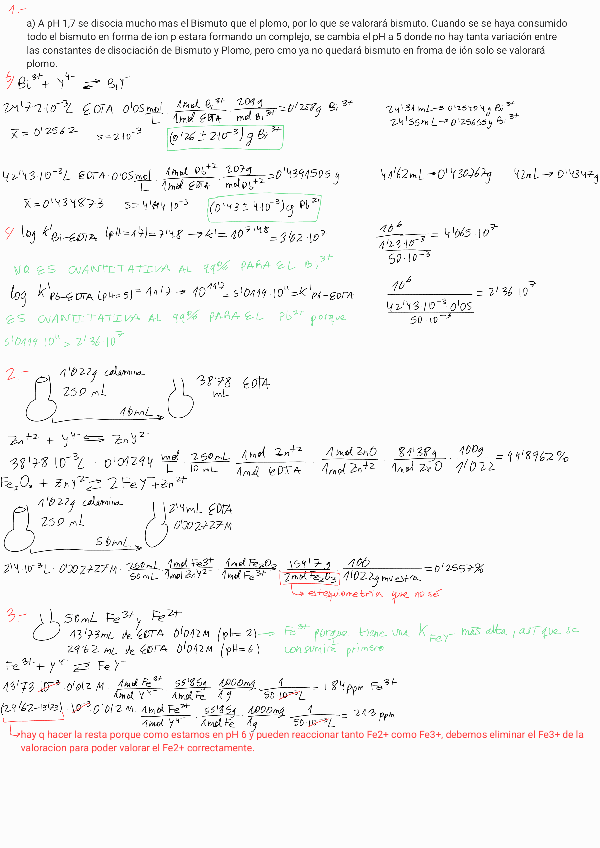 1.-
a) A pH 1,7 se disocia mucho mas el Bismuto que el plomo, por lo que se valorará bismuto. Cuando se se haya consumido
todo el bismuto en forma de ion p estara formando un complejo, se cambia el pH a 5 donde no hay tanta variación entre
las constantes de disociación de Bismuto y Plomo, pero cmo ya no quedará bismuto en froma de ión solo se valorará
plomo.
b) Bi³⁺ + Y⁴⁻ ⇌ BiY⁻
24'72·10⁻³L EDTA 0'05 mol/L · 1mol Bi³⁺/1mol EDTA · 209g/mol Bi³⁺ = 0'258g Bi³⁺
24'31mL → 0'25404g Bi³⁺
24'55mL → 0'25655g Bi³⁺
x̄ = 0'2562 s = 2·10⁻³ (0'26 ± 2·10⁻³) g Bi³⁺
42'43·10⁻³L EDTA · 0'05 mol/L · 1mol Pb⁺²/1mol EDTA · 207g/mol Pb⁺² = 0'4391505g
41'62mL → 0'430767g 42mL → 0'4347g
x̄ = 0'434873 s = 4'14·10⁻³ (0'43 ± 4·10⁻³) g Pb²⁺
log K'Bi-EDTA (pH=1'7) = 7'48 → K' = 10^7'48 = 3'02·10⁷
10⁶/(1'23·10⁻³/50·10⁻³) = 4'065·10⁷
NO ES CUANTITATIVA AL 99'9% PARA EL Bi³⁺
log K'Pb-EDTA (pH=5) = 11'7 → 10^11'7 = 5'0119·10¹¹ = K'Pb-EDTA
10⁶/(42'43·10⁻³·0'05/50·10⁻³) = 2'36·10⁷
ES CUANTITATIVA AL 99'9% PARA EL Pb²⁺ porque
5'0119·10¹¹ > 2'36·10⁷
2.-
1'022g calamina
250 mL
10mL
38'78 EDTA
mL
Zn⁺² + Y⁴⁻ ⇌ ZnY²⁻
38'78·10⁻³L · 0'01294 mol/L · 250mL/10mL · 1mol Zn⁺²/1mol EDTA · 1molZnO/1molZn⁺² · 81'38g/1molZnO · 100g/1'022 = 99'8962%
Fe₂O₃ + ZnY²⁻ ⇌ 2FeY⁻ + Zn²⁺
1'022g calamina
250 mL
50mL
2'4mL EDTA
0'002727M
2'4·10⁻³L · 0'002727M · 250mL/50mL · 1molFe³⁺/1molZnY²⁻ · 1molFe₂O₃/1molFe³⁺ · 159'7g/2molFe₂O₃ · 100/1'022g muestra = 0'2557%
→ estequiometria que no sé
3.-
50mL Fe³⁺ y Fe²⁺
13'73mL de EDTA 0'012M (pH=2) → Fe³⁺ porque tiene una KFeY más alta, así que se
29'62 mL de EDTA 0'012M (pH=6) consumirá primero
Fe³⁺ + Y⁴⁻ ⇌ FeY⁻
13'73·10⁻³·0'012M · 1molFe³⁺/1mol Y⁴⁻ · 55'85g/1molFe · 1000mg/1g · 1/50·10⁻³L = 184 ppm Fe³⁺
(29'62-13'73)·10⁻³·0'012M · 1molFe²⁺/1molY⁴⁻ · 55'85g/1molFe · 1000mg/1g · 1/50·10⁻³L = 213 ppm
hay q hacer la resta porque como estamos en pH 6 y pueden reaccionar tanto Fe2+ como Fe3+, debemos eliminar el Fe3+ de la
valoracion para poder valorar el Fe2+ correctamente.